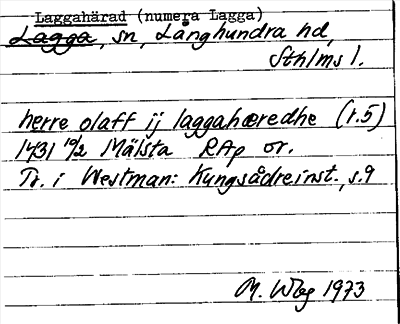 Laggahärad (numera Lagga)
Lagga, sn, Långhundra hd,
Sthlms l.
herre olaff ij laggahæredhe (r.5)
1431 10/2 Mälsta RAp or.
Tr. i Westman: Kungsådreinst., s.9
M. Wbg 1973